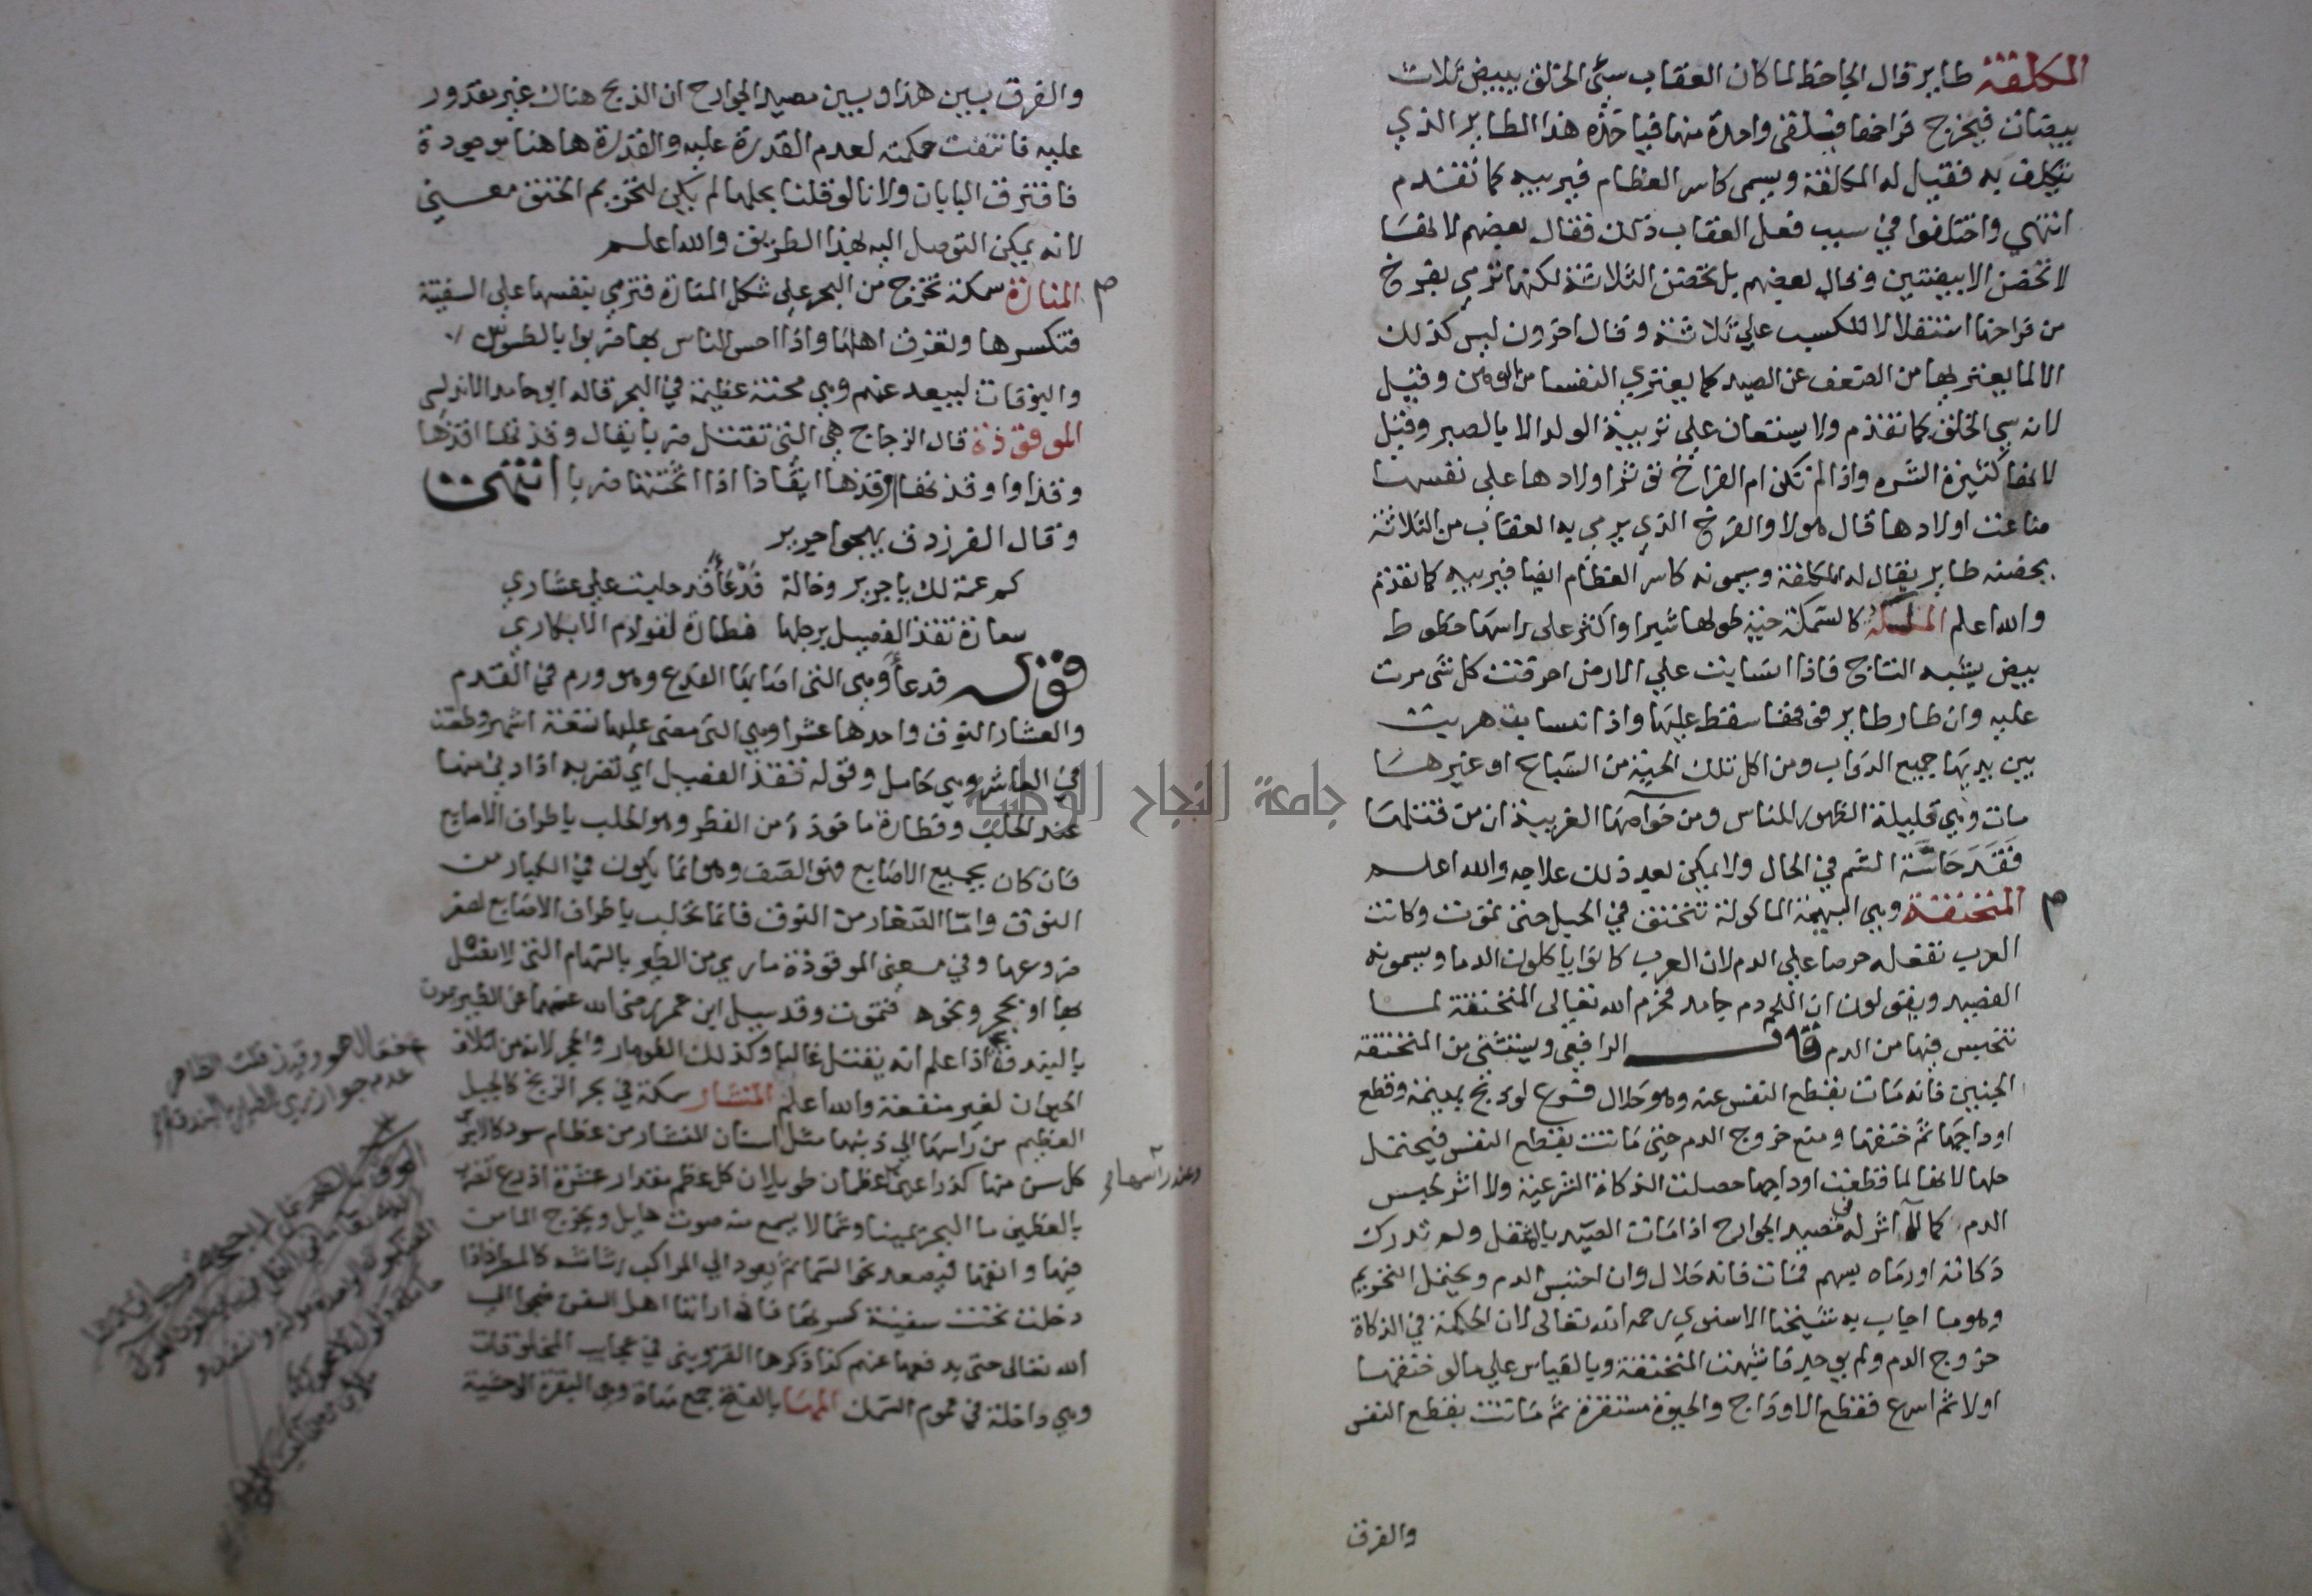 المكلفة طاير قال الجاحظ لما كان العقاب سيّى الخلق يبيض ثلاث
بيضات فيخرج فراخها فيلقى واحدة منها فياخذه هذا الطاير الذي
يتكلف به فقيل له المكلفة ويسمى كاسر العظام فيربيه كما تقدم
انتهي واختلفوا في سبب فعل العقاب ذلك فقال بعضهم لانها
لا تحضن الا بيضتين وقال بعضهم بل تحضن الثلاثة لكنها ترمي بفرخ
من فراخها استثقلالا للكسب علي ثلاثة وقال اخرون ليس كذلك
الا لما يعتريها من الضعف عن الصيد كما يعتري النفسا من الوهن وقيل
لانه سي الخلق كما تقدم ولا يستعان علي تربية الولد الا بالصبر وقيل
لانها كثيرة الشره واذا لم تكن ام الفراخ تؤثر اولادها علي نفسها
ضاعت اولادها قال هولا والفرخ الذي يرمي به العقاب من الثلاثة
يحضنه طاير يقال له المكلفة ويسمونه كاسر العظام ايضا فيربيه كما تقدم
والله اعلم كالسمكة حية طولها شبرا واكثر علي راسها خطوط
بيض يشبه التاج فاذا انسابت علي الارض احرقت كل شي مرت
عليه وان طار طاير فوقها سقط عليها واذا انسابت هربت
بين يديها جميع الدواب ومن اكل تلك الحية من السباع او غيرها
مات وهي قليلة الظهور للناس ومن خواصها الغريبة ان من قتلها
فقد حاسّة الشم في الحال ولا يمكن بعد ذلك علاجه والله اعلم
م المنخنقة وهي البهيمة الماكولة تختنق في الحبل حتى تموت وكانت
العرب تفعله حرصا علي الدم لان العرب كانوا ياكلون الدم ويسمونه
الفصيد ويقولون ان اللحم دم جامد فحرم الله تعالى المنخنقة لما
تنحبس فيها من الدم قال الرافعي ويستثني من المنخنقة
الجنين فانه مات بقطع النفس عنه وهو حلال فرع لو ذبح بهيمة وقطع
اوداجها ثم خنقها ومنع خروج الدم حتى ماتت بقطع النفس فيحتمل
حلها لانها لما قطعت اوداجها حصلت الذكاة الشرعية ولا اثر لحبس
الدم كما لا اثر له في صيد الجوارح اذا ماتت الصيد بالثقل ولم تدرك
ذكاته او رماه بسهم فمات فانه حلال وان احتبس الدم ويحتمل التحريم
وهو ما اجاب به شيخنا الاسنوي رحمه الله تعالى لان الحكمة في الذكاة
خروج الدم ولم يوجد فاشبهت المنخنقة وبالقياس علي ما لو خنقها
اولا ثم اسرع فقطع الاوداج والحيوة مستقرة ثم ماتت بقطع النفس
والفرق
والفرق بين هذا وبين صيد الجوارح ان الذبح هناك غير مقدور
عليه فانتفت حكمته لعدم القدرة عليه والقدرة هاهنا موجودة
فافترق البابان ولانا لو قلنا بحلها لم يكن لتحريم المختنق معني
لانه يمكن التوصل اليه بهذا الطريق والله اعلم
م المنارة سمكة تخرج من البحر علي شكل المنارة فترمي بنفسها علي السفينة
فتكسرها وتغرق اهلها واذا احس الناس بها ضربوا بالطوس
والبوقات لتبعد عنهم وهي محنة عظيمة في البحر قاله ابو حامد الاندلسي
الموقوذة قال الزجاج هي التي تقتل ضربا يقال وقذتها اقذها
وقذا واوقذتها اوقذها ايقاذا اذا اثخنتها ضربا انتهى
وقال الفرزدق يهجوا جرير
كم عمة لك يا جرير وخالة فدعاء قد حلبت علي عشاري
سعارة تقذ الفصيل برجلها فطارة لقوادم الابكاري
قوله فدعاء وهي التي اصابها الفدع وهو ورم في القدم
والعشار النوق واحدها عشرا وهي التي مضى عليها تسعة اشهر وطعنت
في العاشر وهي حامل وقوله تقذ الفصيل اي تضربه اذا دني منها
عند الحلب وفطارة ماخوذة من الفطر وهو الحلب باطراف الاصابع
فان كان بجميع الاصابع فهو الصف وهو انما يكون في الكبار من
النوق وامّا الصغار من النوق فانما تحلب باطراف الاصابع لصغر
ضروعها وفي معنى الموقوذة ما رمي من الطير بالسهام التي لا نصل
بها او بحجر ونحوه فتموت وقد سيل ابن عمر رضي الله عنهما عن الطير يموت
بالبندقة اذا علم انه يقتل غالبا وكذلك الطومار والحجر لانه من اتلاف
الحيوان لغير منفعة والله اعلم المنشار سمكة في بحر الزنج كالجبل
العظيم من راسها الي ذنبها مثل اسنان المنشار من عظام سود كالابنوس
كل سن منها كذراعين عظمان طويلان كل عظم مقدار عشرة اذرع تضرب
وعند راسها
بالعظمين ما البحر يمينا وشمالا يسمع منه صوت هايل ويخرج الما من
فيها وانفها فيصعد نحو السما ثم يعود الي المراكب رشاشه كالمطر فاذا
دخلت تحت سفينة كسرتها فاذا راتها اهل السفن ضجوا الي
الله تعالى حتى يدفعها عنهم كذا ذكرها القزويني في عجايب المخلوقات
وهي داخلة في عموم السمك المها بالفتح جمع مهاة وهي البقرة الوحشية
جامعة النجاح الوطنية